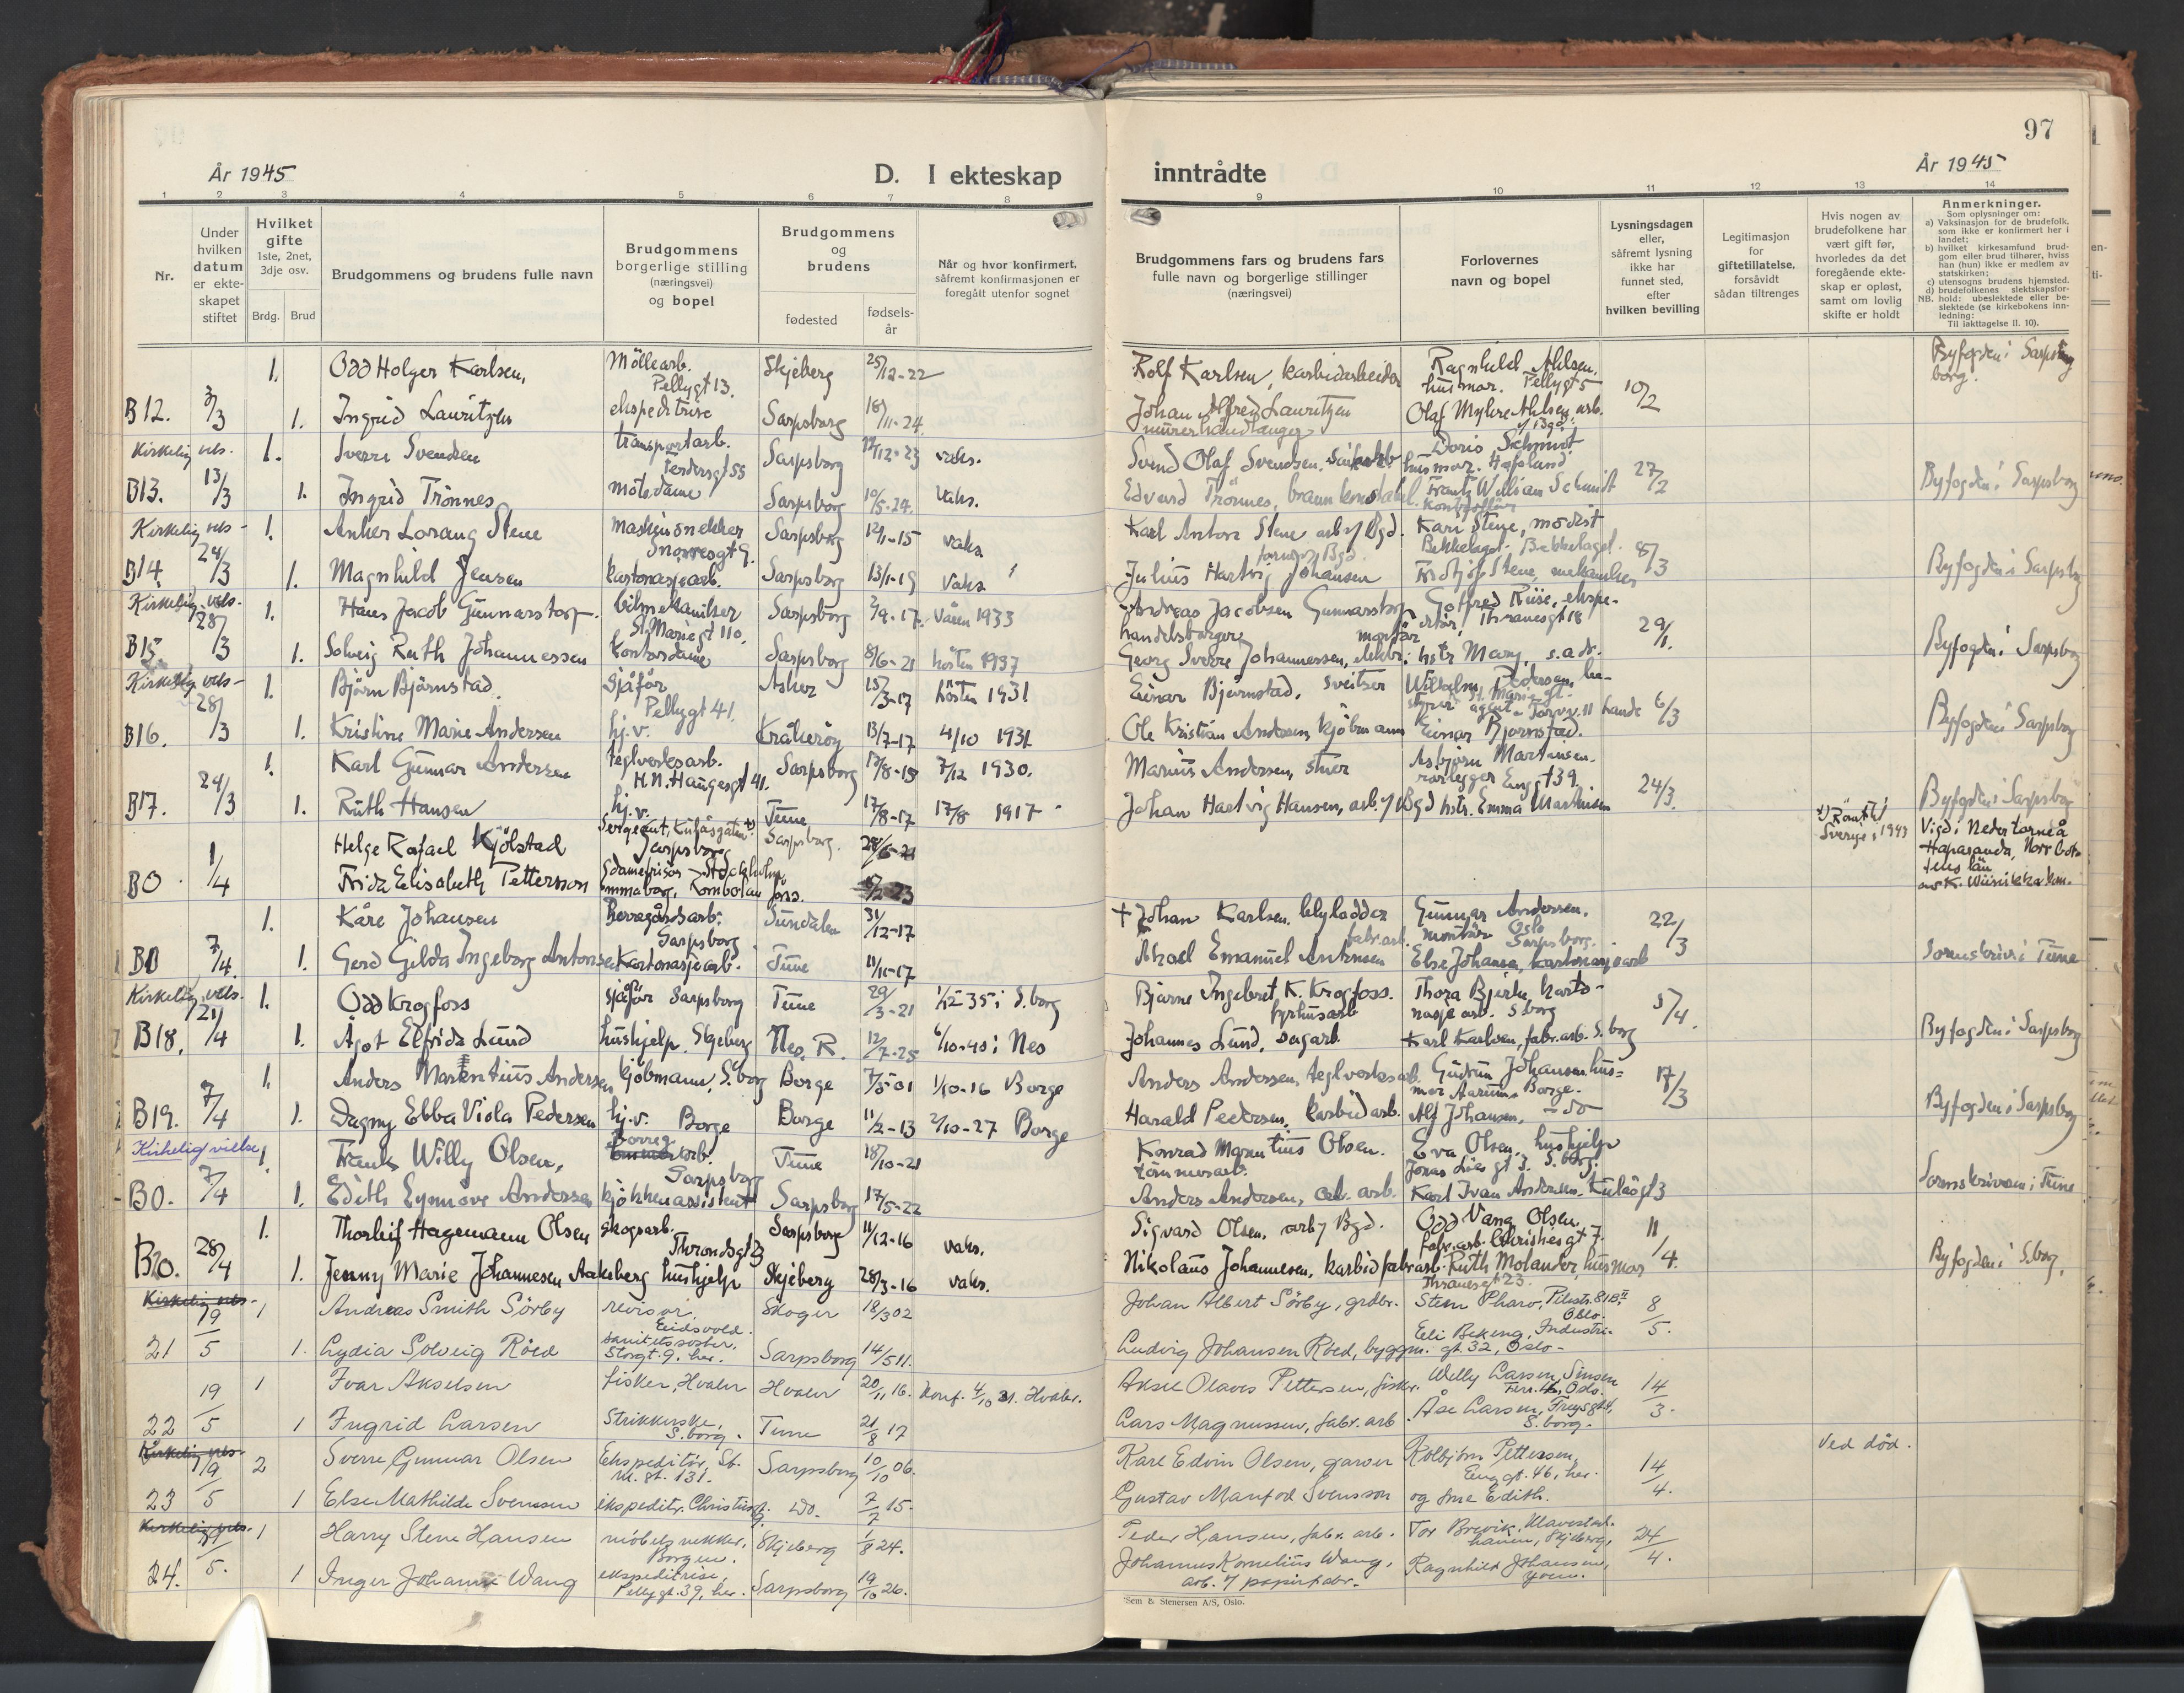 97
År 1945
D. I ekteskap
inntrådte
År 1945
1 2 3 4 5 6 7 8 9 10 11 12 13 14
Nr.
Under hvilken datum er ekteskapet stiftet
Hvilket gifte 1ste, 2net, 3dje osv.
Brdg. Brud
Brudgommens og brudens fulle navn
Brudgommens borgerlige stilling (næringsvei) og bopel
Brudgommens og brudens
fødested
fødselsår
Når og hvor konfirmert, såfremt konfirmasjonen er foregått utenfor sognet
Brudgommens fars og brudens fars fulle navn og borgerlige stillinger (næringsvei)
Forlovernes navn og bopel
Lysningsdagen eller, såfremt lysning ikke har funnet sted, efter hvilken bevilling
Legitimasjon for giftetillatelse, forsåvidt sådan tiltrenges
Hvis nogen av brudefolkene har vært gift før, hvorledes da det foregående ekteskap er opløst, samt om lovlig skifte er holdt
Anmerkninger.
Som oplysninger om:
a) Vaksinasjon for de brudefolk. som ikke er konfirmert her i landet;
b) hvilket kirkesamfund brudgom eller brud tilhører, hviss han (hun) ikke er medlem av statskirken;
c) utensogns brudens hjemsted.
d) brudefolkenes slektskapsforhold: ubeslektede eller beslektede (se kirkebokens innledning:
NB.
Til iakttagelse II. 10).
1. Odd Holger Karlsen, Möllearb. Pellygt 13. Skjeberg 25/12-22 Rolf Karlsen, karbidarbeider Ragnhild Ahlsen, husmor. Pellygt 5 10/2 Byfogden i Sarpsborg.
B12. 3/3 1. Ingrid Lauritzen ekspeditrise Sarpsborg 18/11-24. Johan Alfred Lauritzen murerhandlanger Olaf Myhre Ahlsen, arb.
Kirkelig vels. 1. Sverre Svendsen transportarb. Sarpsborg 12-23 vaks. Svend Olaf Svendsen, Doris Schmidt husmor. Hafslund 27/2
B13. 13/3 1. Ingrid Trönnes motedame Sarpsborg 10/5-24. vaks. Edvard Trönnes, brannkonstabel. Frantz William Schmidt Byfogden i Sarpsborg
Kirkelig vels- 1. Anker Lorang Stene maskinsnekker Snorresgt 9. Sarpsborg 12/1-15 vaks. Karl Anton Stene arb. v/ Bgd. Kari Stene, modist Bekkelaget. 8/3
B14. 24/3 1. Magnhild Jensen kartonasjearb. Sarpsborg 13/1-19 vaks. Julius Hartvig Johansen Fridtjof Stene, mekaniker Byfogden i Sarpsborg
Kirkelig vels- 1. Hans Jacob Gunnarstorp bilmekaniker St. Mariegt 110. Sarpsborg 2/9-17. Våren 1933 Andreas Jacobsen Gunnarstorp handelsborger Gotfred Riise, ekspeditör, Thranesgt 18 29/1.
B15. 28/3 1. Solveig Ruth Johannessen kontordame Sarpsborg 8/6-21 hösten 1937 Georg Sverre Johannessen, elektr. montör hstr Mary, s. adr. Byfogden i Sarpsborg
Kirkelig vels- 1. Björn Björnstad sjåför Pellygt 41. Asker 15/3-17 hösten 1931 Einar Bjørnstad, sveitser Wilhelm Pedersen, 6/3
B16. 28/3 1. Kristine Marie Andersen hj.v. Kråkeröy 13/7-17 4/10 1931 Ole Kristian Andersen, kjöbmann Einar Bjørnstad. Byfogden i Sarpsborg
1. Karl Gunnar Andersen teglverksarb. H.N. Haugesgt 41. Sarpsborg 12/8-15 7/12 1930. Marius Andersen, stuer Asbjörn Martinsen. rörlegger Enggt 39. 24/3.
B17. 24/3 1. Ruth Hansen hj.v. Tune 17/8-17 17/8 1917 Johan Hartvig Hansen, arb. v/ Bgd hstr. Emma Martinsen Byfogden i Sarpsborg
Helge Rafael Kjölstad Sergeant, Sarpsborg Sarpsborg. 28/6-21 x) Römt til Sverige i 1943 Vigd i Nedertorneå Haparanda, Norrbottens län
B0. 1/4 Frida Elisabeth Petterson Stockholm
1. Kåre Johansen Borregårdsarb. Sarpsborg Sundalen 31/12-17 + Johan Karlsen, blylodder Gunnar Andersen, montör Oslo 22/3
B0 7/4. 1. Gerd Gilda Ingeborg Antonsen Kartonasjearb. Tune 11/11-17 Aksel Emanuel Antonsen fabr.arb. Else Johansen, kartonasjearb Sarpsborg. Sorenskriver i Tune
Kirkelig vels. 1. Odd Krogfoss sjåför Sarpsborg Tune 29/3-21 1/12-35 i S.borg Bjarne Ingebret K. Krogfoss. fyrhusarb Thora Bjerke, kartonasjearb. S.borg 5/4.
B18. 21/4 1. Ågot Elfrida Lund hushjelp, Skjeberg Nes. R. 12/7-25 6/10-40 i Nes Johannes Lund, sagarb. Karl Karlsen, fabr.arb. S.borg Byfogden i Sarpsborg
1. Anders Marentius Andersen kjöbmann, S.borg Borge 7/5-01 1/10-16 Borge Anders Andersen, teglverksarb. Gudrun Johansen husmor Aarum, Borge. 17/3
B19. 7/4 1. Dagny Ebba Viola Pedersen hj.v. Borge Borge 11/2-13 2/10-27 Borge Harald Pedersen, karbidarb. Alf Johansen, - do Byfogden i Sarpsborg
Kirkelig vielse 1. Frank Willy Olsen, Borreg.arb. Sarpsborg Tune 18/10-21 Konrad Marentius Olsen. tömmerarb. Eva Olsen, hushjelp Jonas Lies gt 3. S.borg.
B0. 7/4 1. Edith Synnöve Andersen kjökkenassistent Sarpsborg 17/5-22 Anders Andersen, arb. Karl Ivan Andersen. Sorenskriveren i Tune
1. Thorleif Hagemann Olsen skogsarb. Throndsgt 3 Sarpsborg 11/12-16 vaks. Sigvard Olsen, arb v Bgd. Odd Vang Olsen, fabr.arb. Christiesgt 7. 11/4.
B20. 28/4 1. Jenny Marie Johannesen Aaksberg hushjelp Skjeberg 28/3-16 vaks. Nikolaus Johannesen, karbidfabrarb. Ruth Molander, husmor Thranesgt 23. Byfogden i S.borg.
Kirkelig vels. 19/5 1 Andreas Smith Sörby revisor, Eidsvold. Skoger 18/3 02 Johan Albert Sörby, grdbr. Sten Pharo, Pilestr. 81B II Oslo. 8/5.
21 1. Lydia Solveig Röed sanitetssöster, Storgt. 9, her. Sarpsborg 14/5 11. Ludvig Johansen Röed, byggm. Eli Bekeng, Industrigt. 32, Oslo-
22 19/5 1 Ivar Akselsen fisker, Hvaler Hvaler 20/11 16. Konf. 4/10 31. Hvaler. Aksel Olaves Pettersen, fisker. Willy Larsen, Sinsen Oslo. 14/3.
1 Ingrid Larsen Strikkerske, S.borg. Tune 21/8 17 Lars Magnussen, fabr. arb Åse Larsen, S.borg.
Kirkelig vels. 23 19/5 2 Sverre Gunnar Olsen Ekspeditör, St. M. gt. 131. Sarpsborg 10/10 06. Karl Edvin Olsen, garver Kolbjörn Pettersen, Enggt. 46, her. 14/4. Ved död.
1 Else Mathilde Svenssen ekspeditr. Do. 7/7 15. Gustav Manfred Svensson og frue Edith.
Kirkelig vels. 24. 5. 1 Harry Stene Hansen möbelsnekker, Borgen. Skjeberg 1/8 24. Peder Hansen, fabr. arb. Tor Brevik, Skjeberg, 24/4.
1 Inger Johanne Wang ekspeditrise, Pellygt. 39, her. Sarpsborg 19/10 26. Johannes Kornelius Wang, arb. v papirfabr. Ragnhild Johansen,
Sem & Stenersen A/S, Oslo.